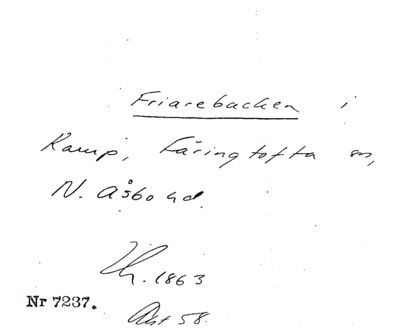 Friarebacken i
Kamp, Färingtofta sn,
N. Åsbo hd.
1863
Nr 7237.
58.